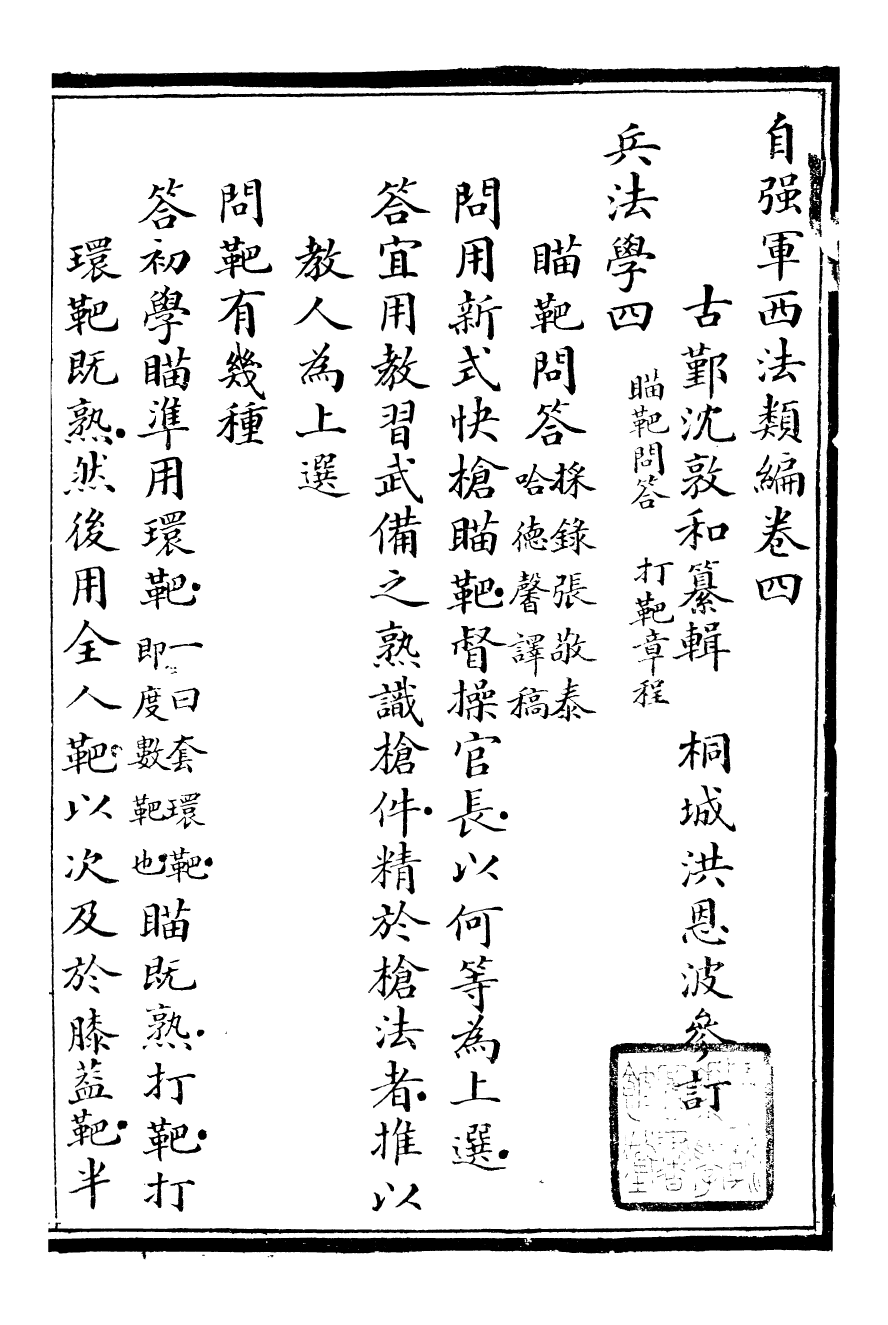 自强軍西法類編卷四
古鄞沈敦和纂輯　桐城洪恩波參訂
兵法學四　瞄靶問答　打靶章程
瞄靶問答　採錄張敬泰哈德馨譯稿
問用新式快槍瞄靶督操官長以何等為上選
答宜用教習武備之熟識槍件精於槍法者推以
教人為上選
問靶有幾種
答初學瞄準用環靶一曰套環靶即度數靶也瞄既熟打靶打
環靶既熟然後用全人靶以次及於膝葢靶半